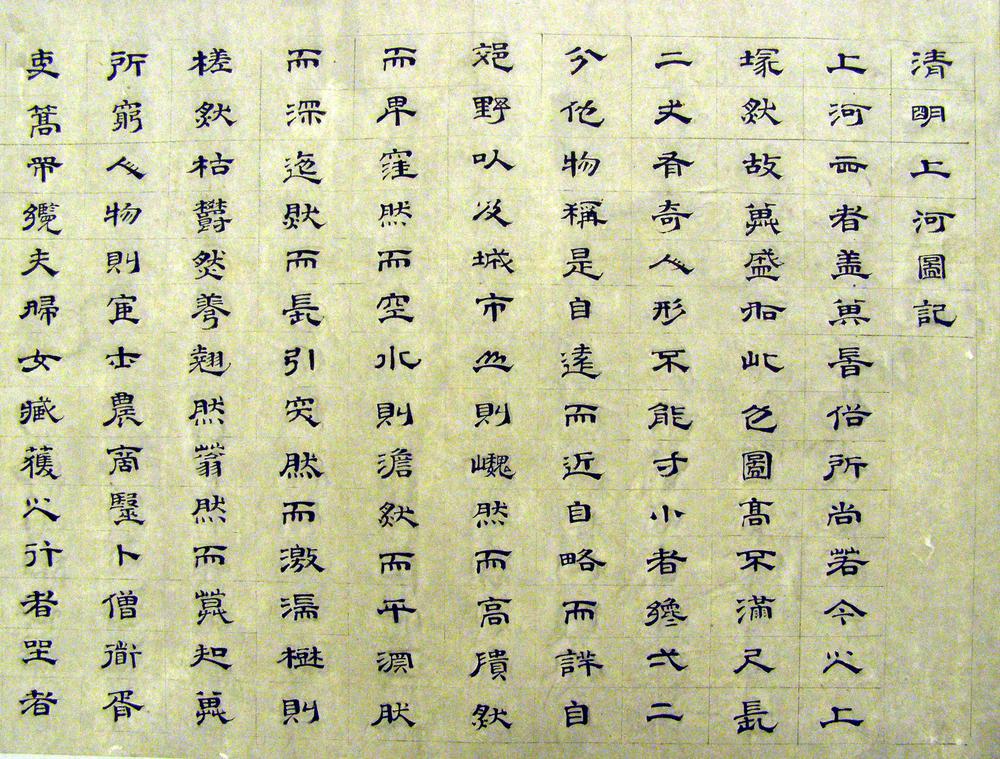 清明上河圖記
上河云者盖其旹俗所尚若今之上
塚然故其盛如此也圖高不滿尺長
二丈有奇人形不能寸小者纔弌二
分他物稱是自遠而近自略而詳自
郊野以及城市山則巍然而高隤然
而卑窪然而空水則澹然而平淵然
而深迤然而長引突然而激湍樹則
槎然枯鬱然秀翹然蓊然而莫知其
所窮人物則官士農商醫卜僧衜胥
吏篙帀纜夫婦女臧獲之行者坐者